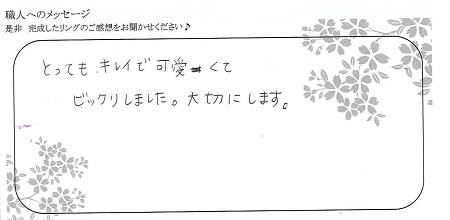 職人へのメッセージ
是非 完成したリングのご感想をお聞かせください♪
とっても キレイで可愛くて
ビックリしました。大切にします。